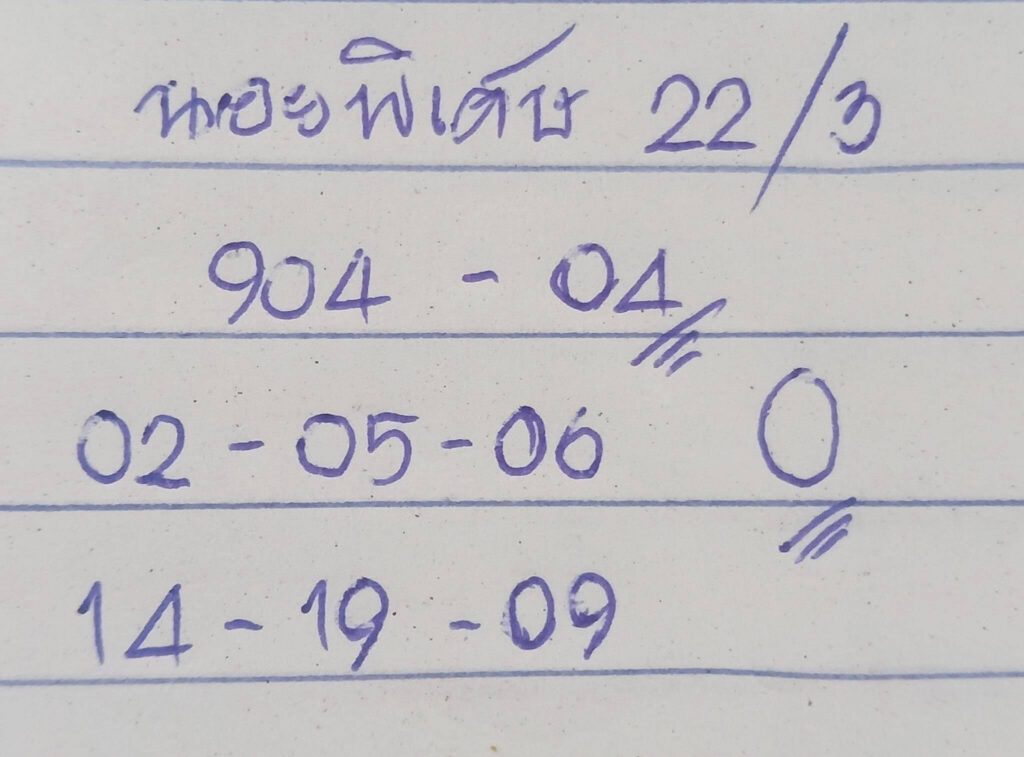 พิเศษ 22/3
904 - 04
02 - 05 - 06 0
14 - 19 - 09